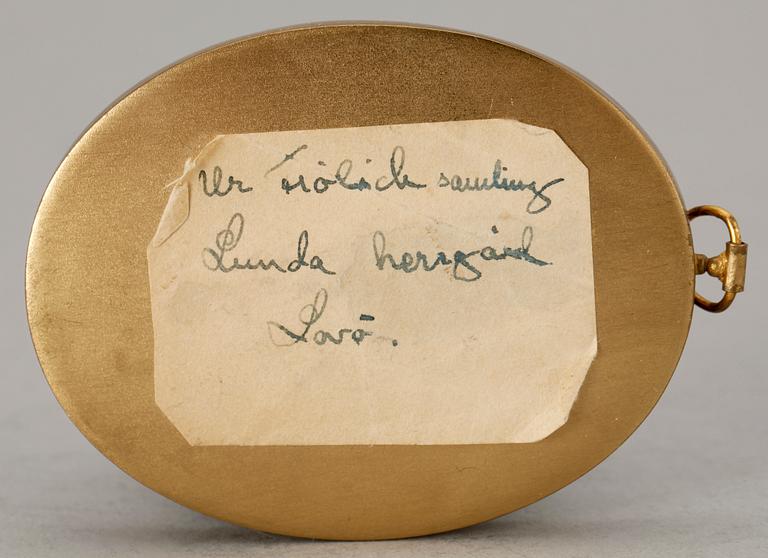 Ur Frölich samling
Lunda herrgård
Lovö.